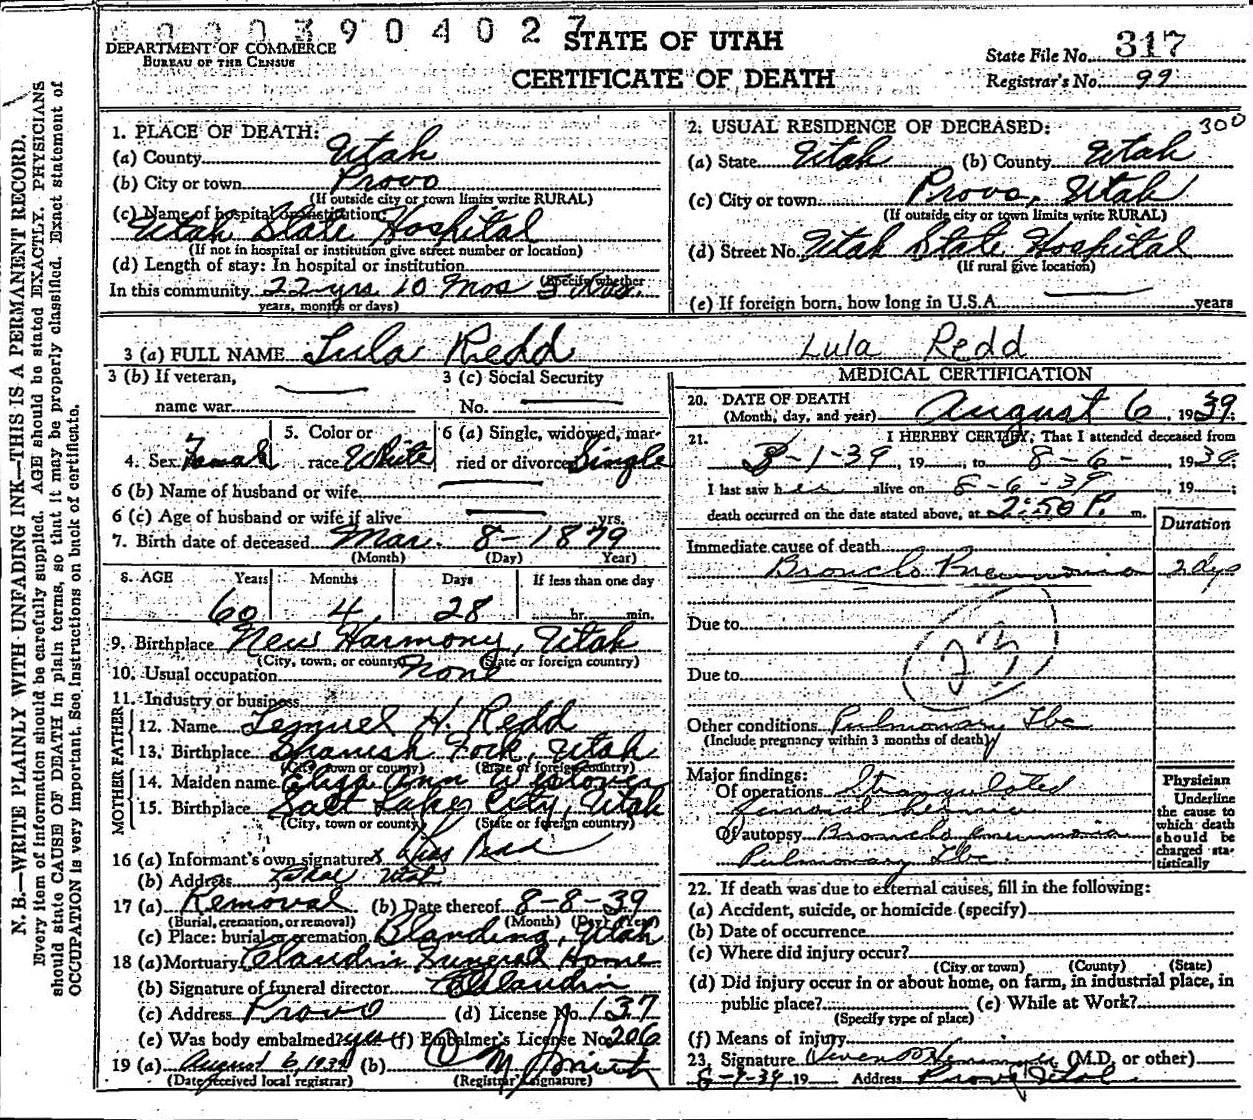 0000390 4 0 2 7
DEPARTMENT OF COMMERCE
BUREAU OF THE CENSUS
STATE OF UTAH
CERTIFICATE OF DEATH
State File No. 317
Registrar's No. 99
N. B.—WRITE PLAINLY WITH UNFADING INK—THIS IS A PERMANENT RECORD.
Every item of information should be carefully supplied. AGE should be stated EXACTLY. PHYSICIANS
should state CAUSE OF DEATH in plain terms, so that it may be properly classified. Exact statement of
OCCUPATION is very important. See instructions on back of certificate.
1. PLACE OF DEATH:
(a) County Utah
(b) City or town Provo
(If outside city or town limits write RURAL)
(c) Name of hospital or institution:
Utah State Hospital
(If not in hospital or institution give street number or location)
(d) Length of stay: In hospital or institution
(Specify whether
In this community 22 yrs 10 Mos
years, months or days)
2. USUAL RESIDENCE OF DECEASED: 300
(a) State Utah (b) County Utah
(c) City or town Provo, Utah
(If outside city or town limits write RURAL)
(d) Street No. Utah State Hospital
(If rural give location)
(e) If foreign born, how long in U.S.A. years
3 (a) FULL NAME Lula Redd Lula Redd
3 (b) If veteran,
name war
3 (c) Social Security
No.
4. Sex Femal 5. Color or race White 6 (a) Single, widowed, married or divorced Single
6 (b) Name of husband or wife
6 (c) Age of husband or wife if alive yrs.
7. Birth date of deceased Mar. 8 - 1879
(Month) (Day) Year)
8. AGE Years Months Days If less than one day
60 4 28 hr. min.
9. Birthplace New Harmony, Utah
(City, town, or county) (State or foreign country)
10. Usual occupation None
11. Industry or business
FATHER
12. Name Lemuel H. Redd
13. Birthplace Spanish Fork, Utah
(City, town or county) (State or foreign country)
MOTHER
14. Maiden name Eliza Ann Westover
15. Birthplace Salt Lake City, Utah
(City, town or county) (State or foreign country)
16 (a) Informant's own signature x Chas Redd
(b) Address Utah
17 (a) Removal (b) Date thereof 8-8-39
(Burial, cremation, or removal) (Month) (Day) (Year)
(c) Place: burial or cremation Blanding, Utah
18 (a) Mortuary Claudin Funeral Home
(b) Signature of funeral director Claudin
(c) Address Provo (d) License No. 137
(e) Was body embalmed? yes (f) Embalmer's License No. 206
19 (a) August 6, 1939 (b)
(Date received local registrar) (Registrar's signature)
MEDICAL CERTIFICATION
20. DATE OF DEATH
(Month, day, and year) August 6, 1939.
21. I HEREBY CERTIFY; That I attended deceased from
8-1-39, 19 to 8-6-, 1939;
I last saw her alive on 8-6-39, 19 ;
death occurred on the date stated above, at 2:50 P. m.
Duration
Immediate cause of death
Broncho Pneumonia 2 dys
Due to
23
Due to
Other conditions Pulmonary Tbc
(Include pregnancy within 3 months of death)
Major findings:
Of operations Strangulated
femoral hernia
Of autopsy Broncho pneumonia
Pulmonary Tbc.
Physician
Underline
the cause to
which death
should be
charged sta-
tistically
22. If death was due to external causes, fill in the following:
(a) Accident, suicide, or homicide (specify)
(b) Date of occurrence
(c) Where did injury occur?
(City or town) (County) (State)
(d) Did injury occur in or about home, on farm, in industrial place, in
public place? (e) While at Work?
(Specify type of place)
(f) Means of injury
23. Signature (M.D. or other)
19 Address Provo, Utah